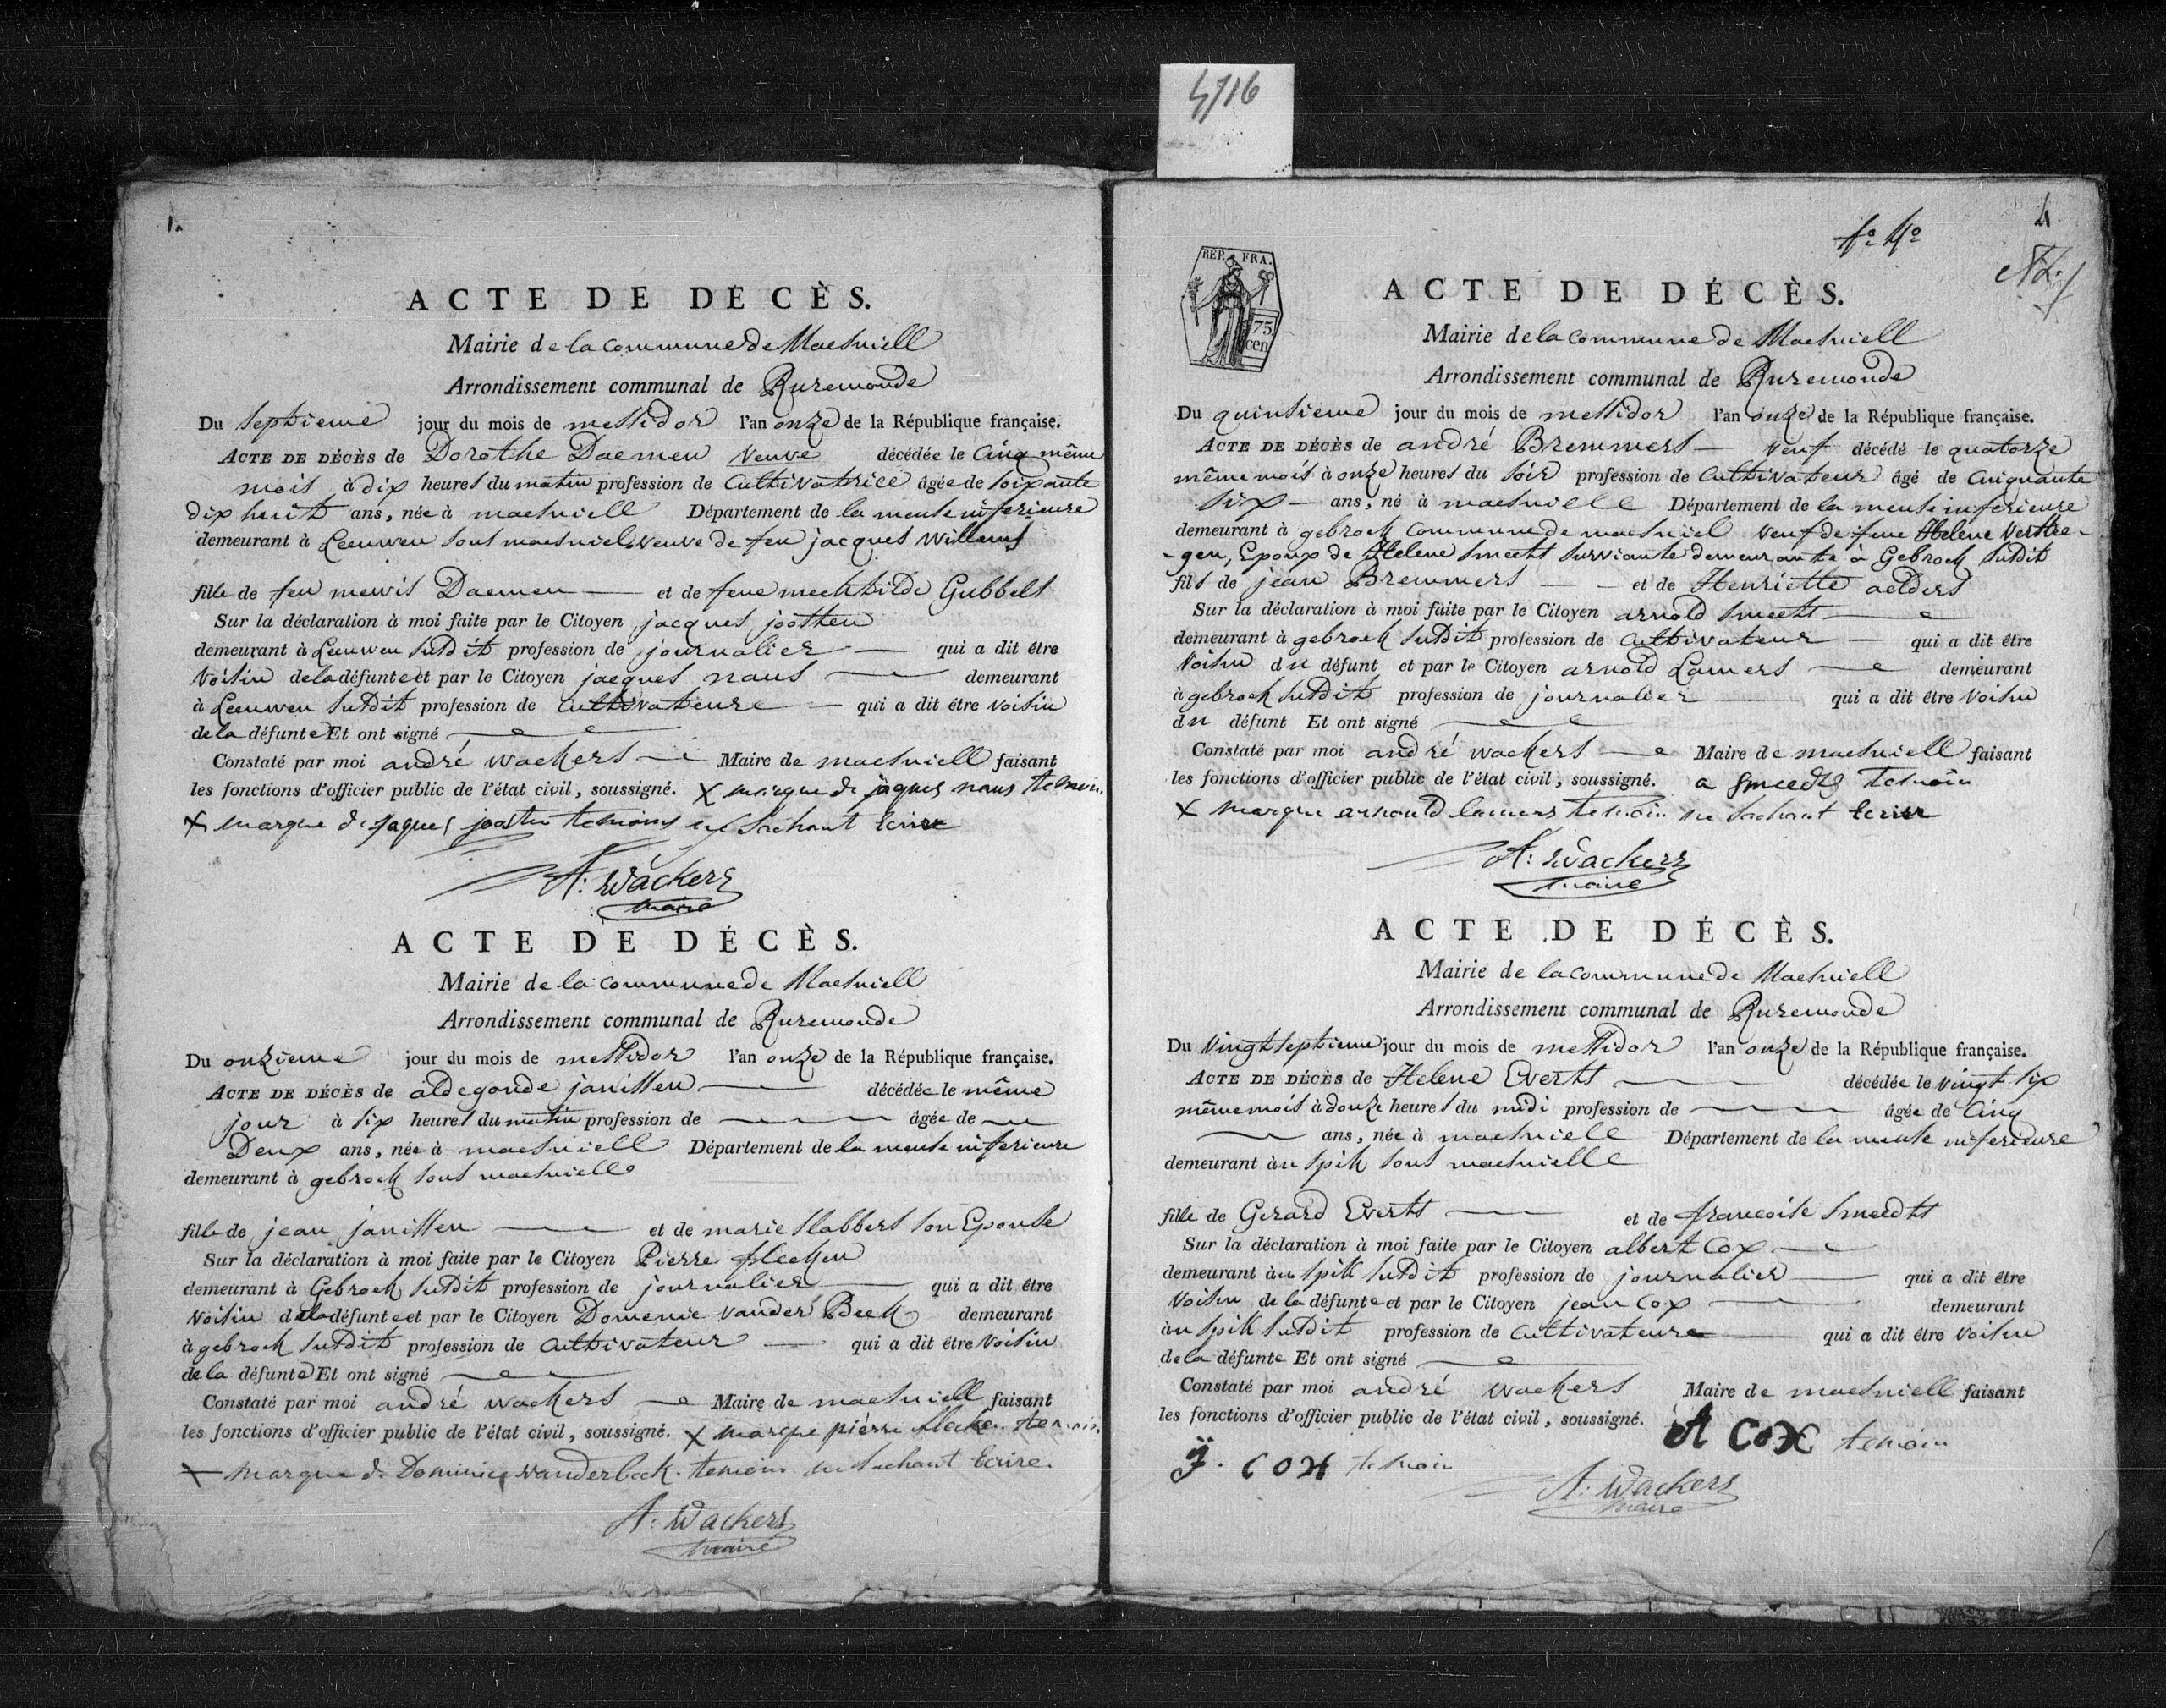 4716
ACTE DE DÉCÈS.
Mairie de la commune de Maesniell
Arrondissement communal de Ruremonde
Du septieme jour du mois de messidor l'an onze de la République française.
ACTE DE DÉCÈS de Dorothe Daemen veuve décédée le cinq même
mois à dix heures du matin profession de cultivatrice âgée de soixante
dix huit ans, née à maesniell Département de la meuse inferieure
demeurant à Leeuwen sous maesniel, veuve de feu jacques Willems
fille de feu mewis Daemen et de feue mechtilde Gubbels
Sur la déclaration à moi faite par le Citoyen jacques joosten
demeurant à Leeuwen susdit profession de journalier qui a dit être
voisin de la défunte et par le Citoyen jacques naus demeurant
à Leeuwen susdit profession de cultivateure qui a dit être voisin
de la défunte Et ont signé
Constaté par moi andré wackers Maire de maesniell faisant
les fonctions d'officier public de l'état civil, soussigné. X marque de jaques naus temoin
X marque de jaques joosten temoins ne sachant Ecrire
A: Wackers
maire
ACTE DE DÉCÈS.
Mairie de la commune de Maesniell
Arrondissement communal de Ruremonde
Du onzieme jour du mois de messidor l'an onze de la République française.
ACTE DE DÉCÈS de aldegonde janissen décédée le même
jour à six heures du matin profession de âgée de
Deux ans, née à maesniell Département de la meuse inferieure
demeurant à gebroek sous maesnielle
fille de jean janissen et de marie slabbers son Epouse
Sur la déclaration à moi faite par le Citoyen Pierre fleeken
demeurant à Gebroek susdit profession de journalier qui a dit être
voisin de la défunte et par le Citoyen Domenic vander Beek demeurant
à gebroek susdit profession de cultivateur qui a dit être voisin
de la défunte Et ont signé
Constaté par moi andré wackers Maire de maesniell faisant
les fonctions d'officier public de l'état civil, soussigné. X marque pierre flecken temoin
X marque de Dominice vanderbeek temoin ne sachant Ecrire.
A: Wackers
maire
fo. 4o
4.
REP. FRA.
75
cen
ACTE DE DÉCÈS.
Mairie de la commune de Maesniell
Arrondissement communal de Ruremonde
Du quinsieme jour du mois de messidor l'an onze de la République française.
ACTE DE DÉCÈS de andré Bremmers veuf décédé le quatorze
même mois à onze heures du soir profession de cultivateur âgé de cinquante
six ans, né à maesnielle Département de la meuse inferieure
demeurant à gebroek commune de maesniel veuf de feue Helene Verstee-
-gen, Epoux de Helene smeets survivante demeurante à Gebroek susdit
fils de jean Bremmers et de Henriette aelders
Sur la déclaration à moi faite par le Citoyen arnold smeets
demeurant à gebroek susdit profession de cultivateur qui a dit être
voisin du défunt et par le Citoyen arnold Lamers demeurant
à gebroek susdit profession de journalier qui a dit être voisin
du défunt Et ont signé
Constaté par moi andré wackers Maire de maesniell faisant
les fonctions d'officier public de l'état civil, soussigné. a smeedts temoin
X marque arnould lamers temoin ne sachant ecrire
A: Wackers
maire
ACTE DE DÉCÈS.
Mairie de la commune de Maesniell
Arrondissement communal de Ruremonde
Du vingt septieme jour du mois de messidor l'an onze de la République française.
ACTE DE DÉCÈS de Helene Everts décédée le vingt six
même mois à douze heures du midi profession de âgée de cinq
ans, née à maesnielle Département de la meuse inferieure
demeurant àu spik sous maesnielle
fille de Gerard Everts et de francoise smeedts
Sur la déclaration à moi faite par le Citoyen albert Cox
demeurant àu spik susdit profession de journalier qui a dit être
voisin de la défunte et par le Citoyen jean Cox demeurant
àu spik susdit profession de cultivateure qui a dit être voisin
de la défunte Et ont signé
Constaté par moi andré wackers Maire de maesniell faisant
les fonctions d'officier public de l'état civil, soussigné. A COX temoin
j. cox temoin
A: Wackers
maire